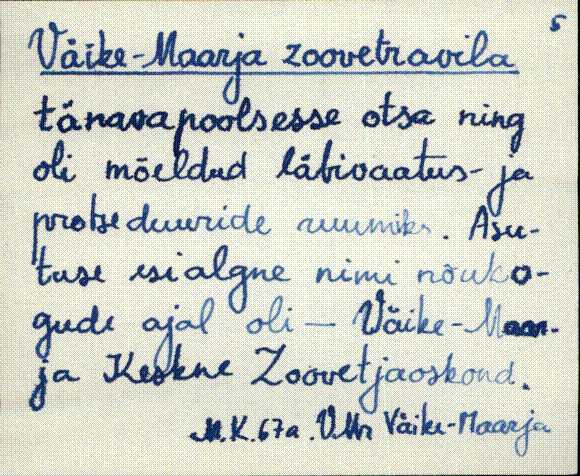 5
Väike-Maarja zoovetravila
tänavapoolsesse otsa ning
oli mõeldud läbivaatus- ja
protseduuride ruumiks. Asu-
tuse esialgne nimi nõuko-
gude ajal oli — Väike-Maar-
ja Keskne Zoovetjaoskond.
M.K. 67a. V.Mr Väike-Maarja